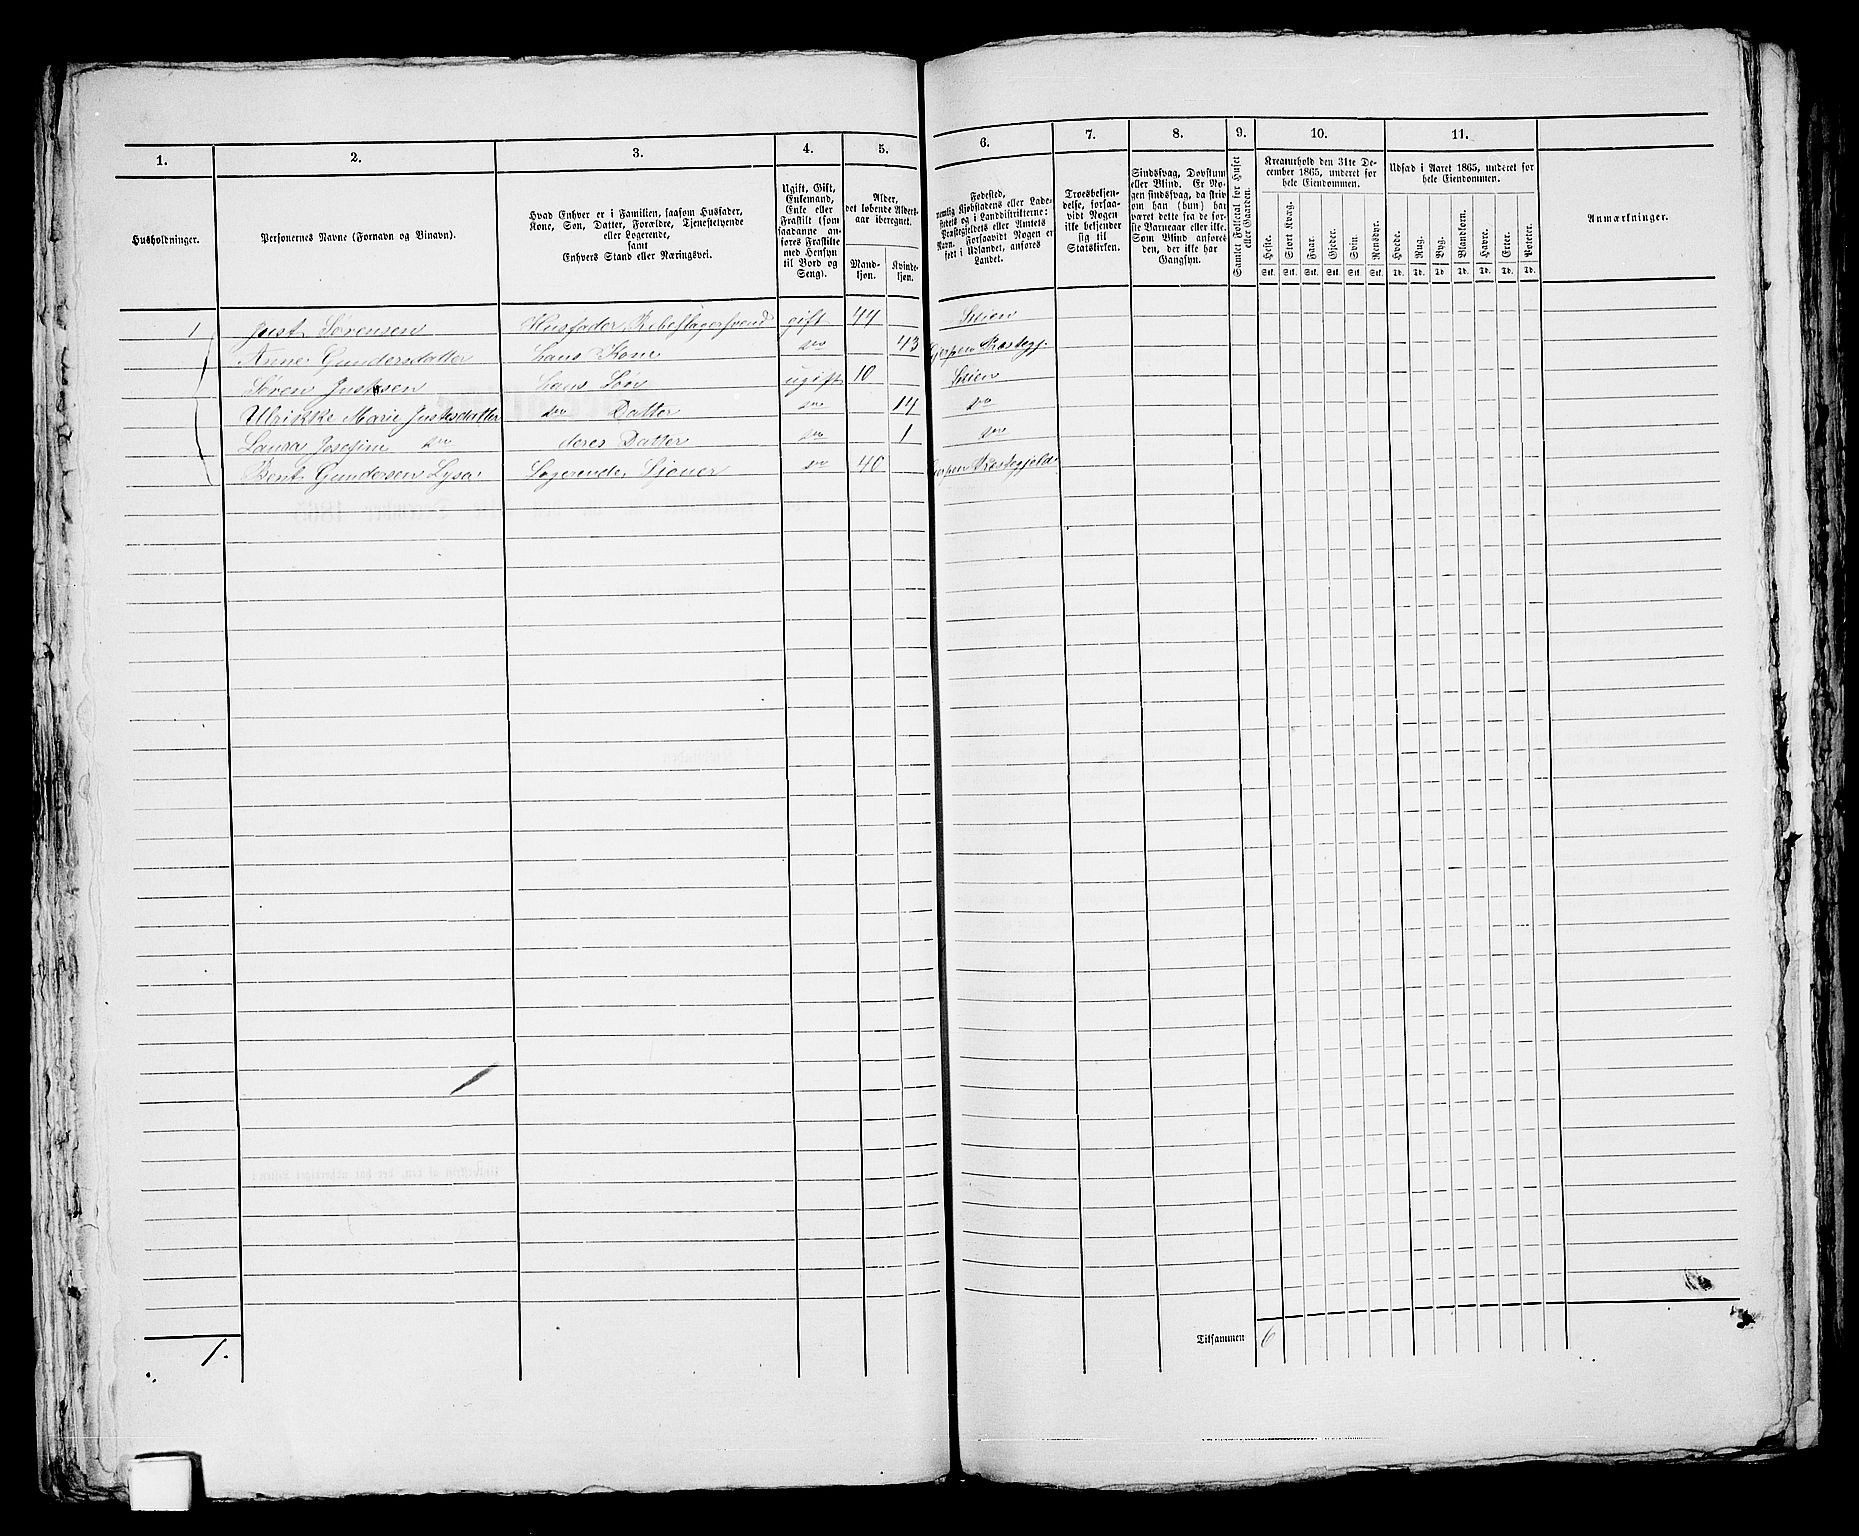 1. 2. 3. 4. 5. 6. 7. 8. 9. 10. 11.
Husholdninger.
Personernes Navne (Fornavn og Vinavn).
Hvad Enhver er i Familien, saasom Husfader,
Kone, Søn, Datter, Forældre, Tjenestetyende
eller Logerende,
samt
Enhvers Stand eller Næringsvei.
Ugift, Gift,
Enkemand,
Enke eller
Fraskilt (som
saadanne an-
føres Fraskilte
med Hensyn
til Bord og
Seng).
Alder,
det løbende Alders-
aar iberegnet.
Mand-
kjøn.
Kvinde-
kjøn.
Fødested,
nemlig Kjøbstadens eller Lade-
stedets og i Landdistrikterne:
Præstegjeldets eller Amtets
Navn. Forsaavidt Nogen er
født i Udlandet, anføres
Landet.
Troesbekjen-
delse, forsaa-
vidt Nogen
ikke bekjender
sig til
Statskirken.
Sindssvag, Døvstum
eller Blind. Er No-
gen sindssvag, da skriv
om han (hun) har
været dette fra de før-
ste Barneaar eller ikke.
Som Blind anføres
den, der ikke har
Gangsyn.
Samlet Folketal for Huset
eller Gaarden.
Kreaturhold den 31te De-
cember 1865, underet for
hele Eiendommen.
Heste. Stort Kvæg. Faar. Gjeder. Svin. Rensdyr.
Stk. Stk. Stk. Stk. Stk. Stk.
Udsæd i Aaret 1865, underet for
hele Eiendommen.
Hvede. Rug. Byg. Blandkorn. Havre. Erter. Poteter.
Td. Td. Td. Td. Td. Td. Td.
Anmærkninger.
1 Just Sørensen Husfader, Rebslagersvend gift 44 Skien
Anne Gundersdatter hans Kone do 43 Gjerpen Præstegj.
Søren Justesen hans Søn ugift 10 Skien
Ulrikke Marie Justesdatter do Datter do 14 do
Laura Josefine do deres Datter do 1 do
Bent Gundersen Lysa Logerende, Sjouer do 40 Gjerpen Præstegjeld
Tilsammen 6
1.